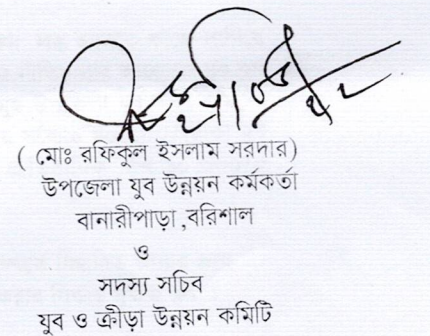 ( মোঃ রফিকুল ইসলাম সরদার)
উপজেলা যুব উন্নয়ন কর্মকর্তা
বানারীপাড়া,বরিশাল
ও
সদস্য সচিব
যুব ও ক্রীড়া উন্নয়ন কমিটি